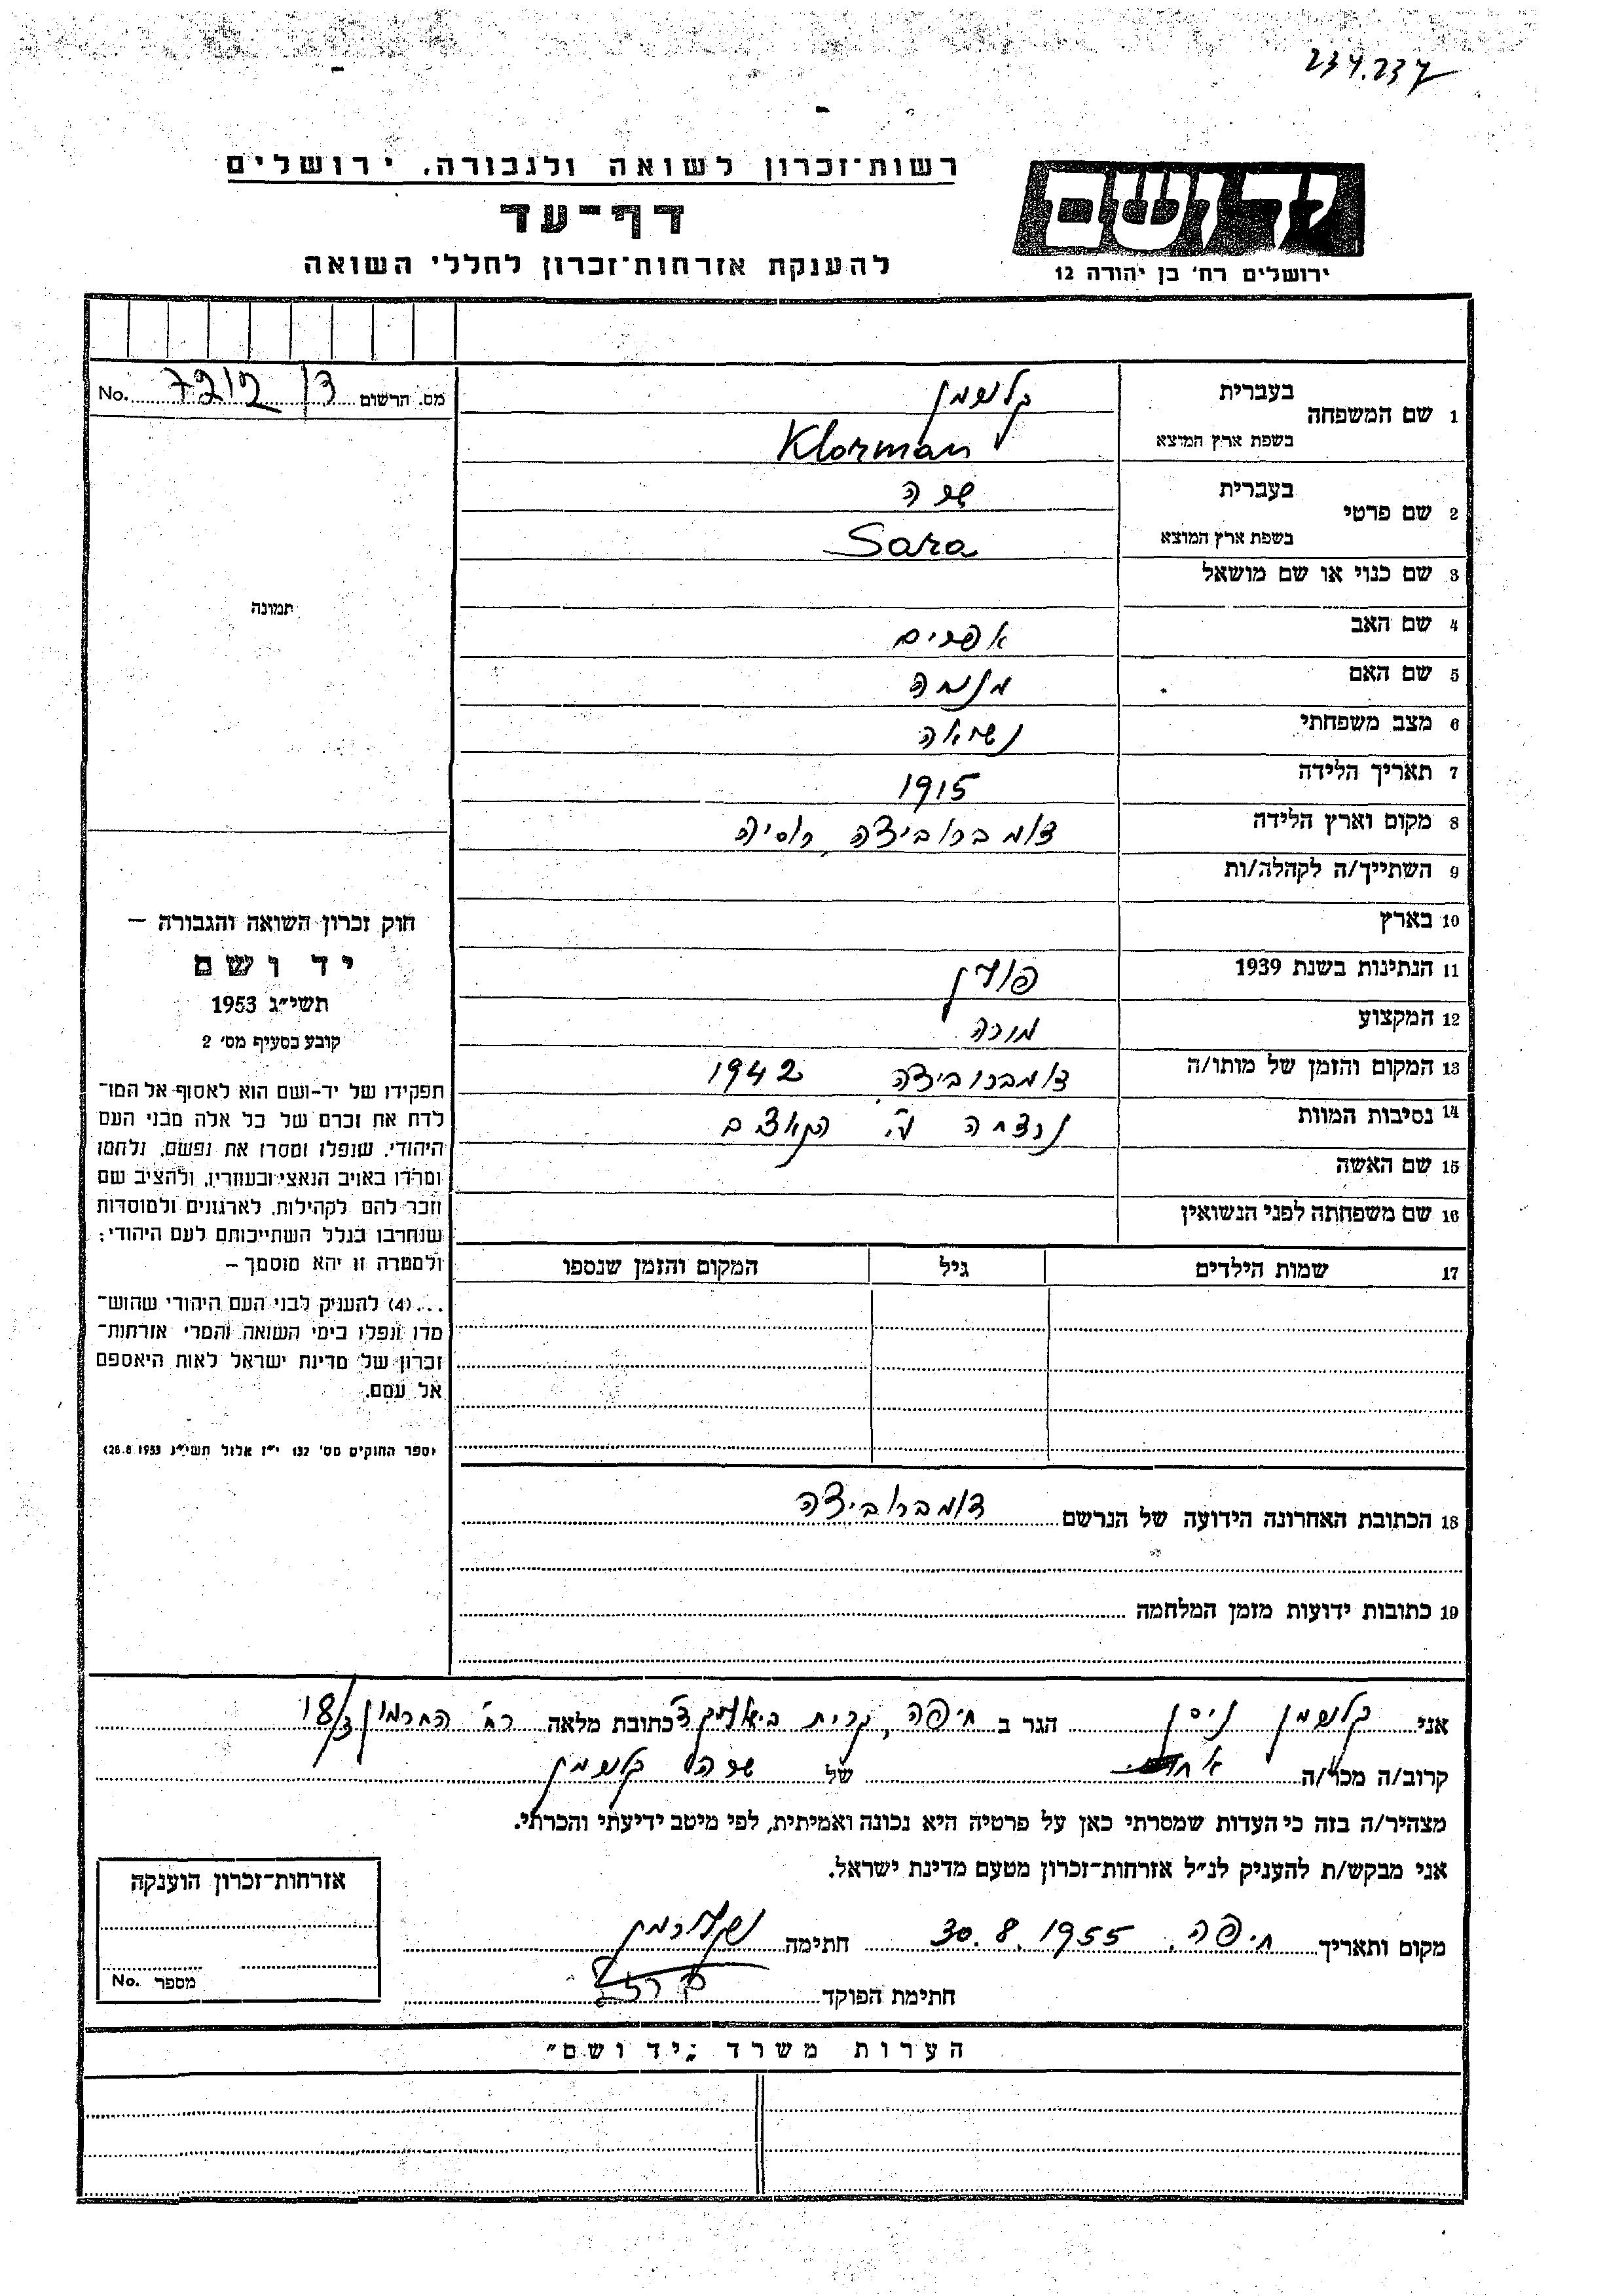 234.237
רשות־זכרון לשואה ולגבורה, ירושלים
יד ושם
דף־עד
להענקת אזרחות־זכרון לחללי השואה
ירושלים רח׳ בן יהודה 12
מס. הרשום 7212 / ד No.
1 שם המשפחה בעברית קלורמן
בשפת ארץ המוצא Klorman
2 שם פרטי בעברית שרה
בשפת ארץ המוצא Sara
3 שם כנוי או שם מושאל
4 שם האב אפרים
5 שם האם
6 מצב משפחתי נשואה
7 תאריך הלידה 1915
8 מקום וארץ הלידה דומברוביצה רוסיה
9 השתייך/ה לקהלה/ות
10 בארץ
11 הנתינות בשנת 1939 פולין
12 המקצוע מורה
13 המקום והזמן של מותו/ה דומברוביצה 1942
14 נסיבות המוות נרצחה ע״י הנאצים
15 שם האשה
16 שם משפחתה לפני הנשואין
17 שמות הילדים גיל המקום והזמן שנספו
18 הכתובת האחרונה הידועה של הנרשם דומברוביצה
19 כתובות ידועות מזמן המלחמה
תמונה
חוק זכרון השואה והגבורה –
יד ושם
תשי״ג 1953
קובע בסעיף מס׳ 2
תפקידו של יד-ושם הוא לאסוף אל המו־
לדת את זכרם של כל אלה מבני העם
היהודי, שנפלו ומסרו את נפשם, נלחמו
ומרדו באויב הנאצי ובעוזריו, ולהציב שם
וזכר להם לקהילות, לארגונים ולמוסדות
שנחרבו בגלל השתייכותם לעם היהודי;
ולמטרה זו יהא מוסמך –
...(4) להעניק לבני העם היהודי שהוש־
מדו ונפלו בימי השואה והמרי אזרחות־
זכרון של מדינת ישראל לאות היאספם
אל עמם.
(ספר החוקים מס׳ 132 י״ז אלול תשי״ג 28.8.1953)
אני קלורמן ניסן הגר ב חיפה, קרית ביאליק ג׳ כתובת מלאה רח׳ החרמון 18/3
קרוב/ה מכר/ה של שרה קלורמן
מצהיר/ה בזה כי העדות שמסרתי כאן על פרטיה היא נכונה ואמיתית, לפי מיטב ידיעתי והכרתי.
אני מבקש/ת להעניק לנ״ל אזרחות־זכרון מטעם מדינת ישראל.
מקום ותאריך חיפה, 30.8.1955 חתימה נ. קלורמן
חתימת הפוקד
אזרחות־זכרון הוענקה
מספר No.
הערות משרד „יד ושם״